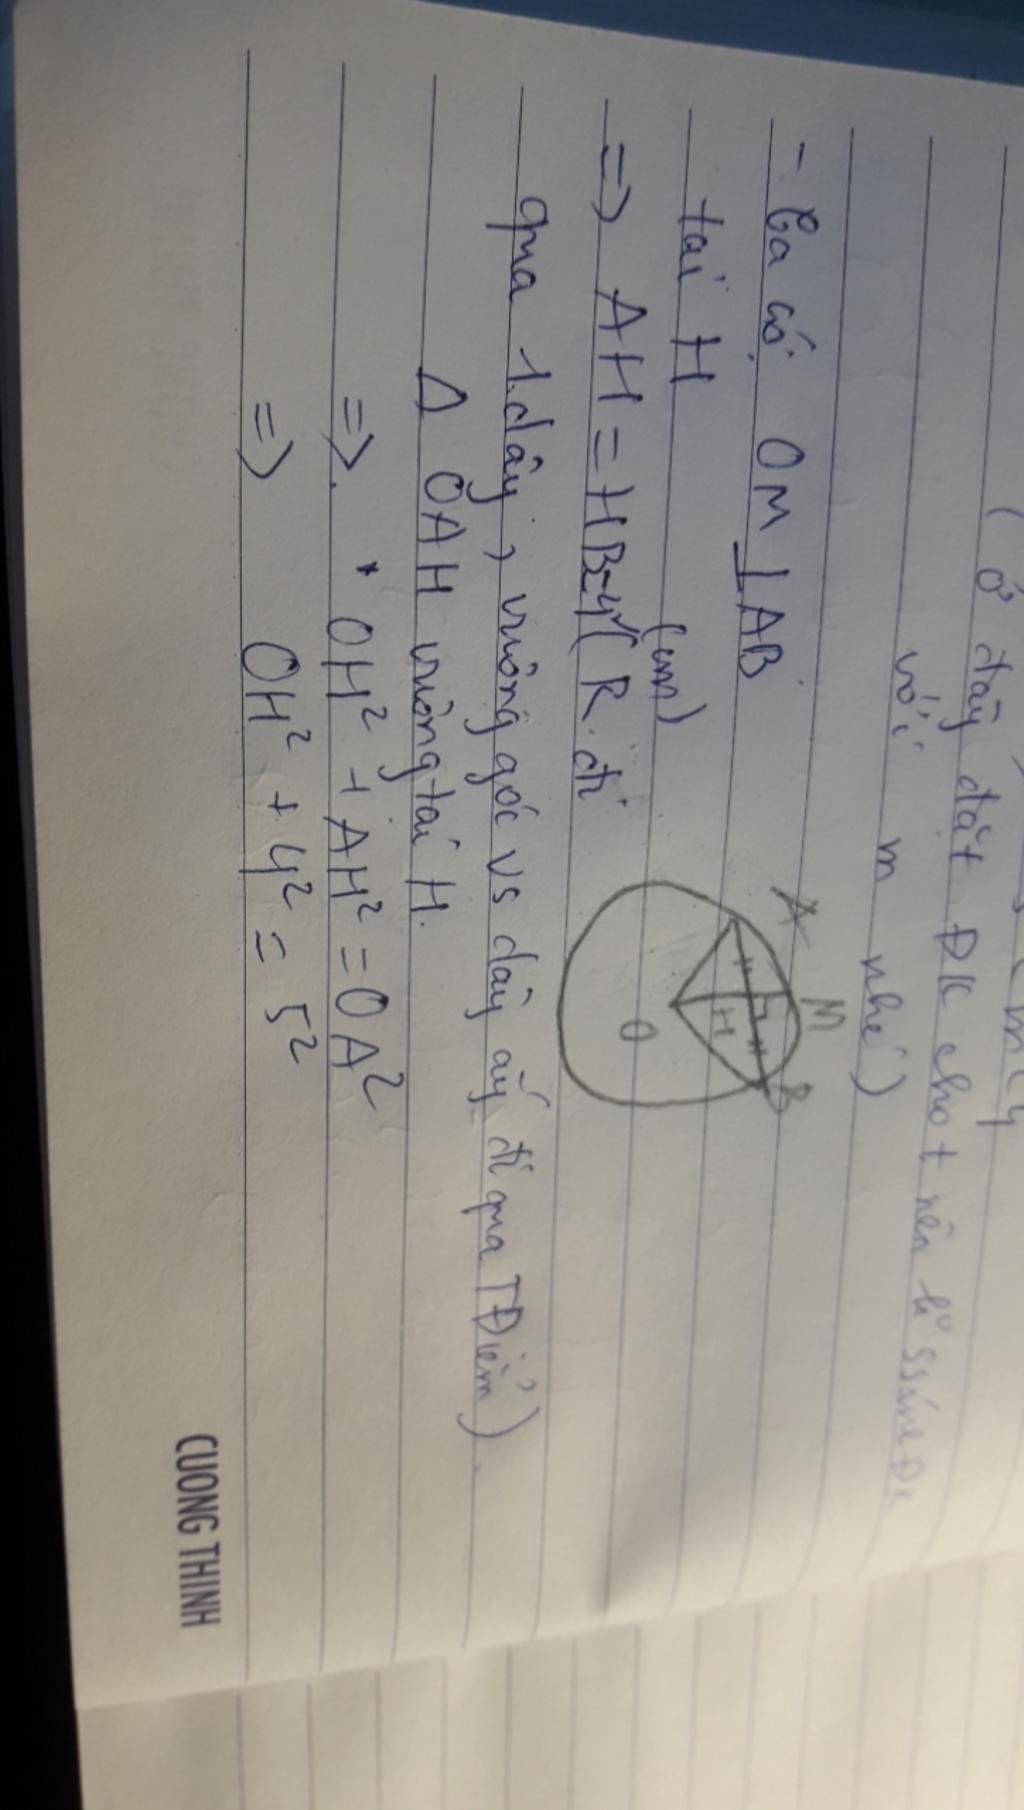 ( ở đây đặt ĐK cho t nên k° ssánh ĐK
với m nhé )
- Ta có OM ⊥ AB
tại H
(cm)
=> AH = HB = 4 ( R đi
qua 1 dây, vuông góc vs dây ấy đi qua TĐiểm )
Δ OAH vuông tại H.
=> * OH² + AH² = OA²
=> OH² + 4² = 5²
A
M
B
H
O
CUONG THINH